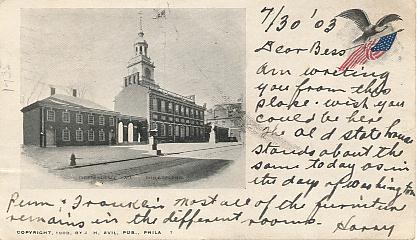 7/30 '03
Dear Bess
Am writing
you from this
place. wish you
could be here
The old state house
stands about the
same today as in
the days of Washington
Penn & Franklin most all of the furniture
remains in the different rooms.
Harry
INDEPENDENCE HALL PHILADELPHIA.
COPYRIGHT, 1900, BY J. H. AVIL, PUB., PHILA